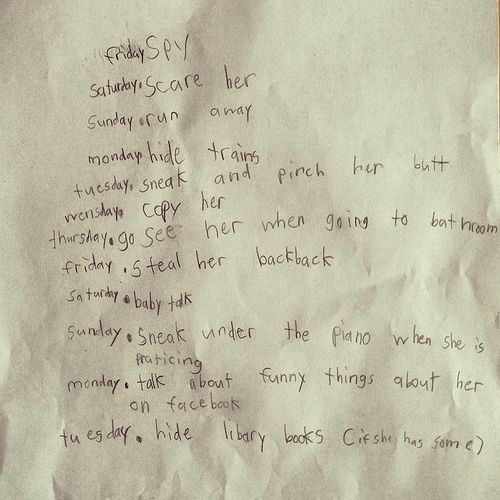 friday SPY
saturday. scare her
sunday. run away
monday. hide trains
tuesday. sneak and pinch her butt
wensday. copy her
thursday. go see her when going to bathroom
friday. steal her backback
saturday. baby talk
sunday. sneak under the piano when she is
praticing
monday. talk about funny things about her
on facebook
tuesday. hide libary books (if she has some)